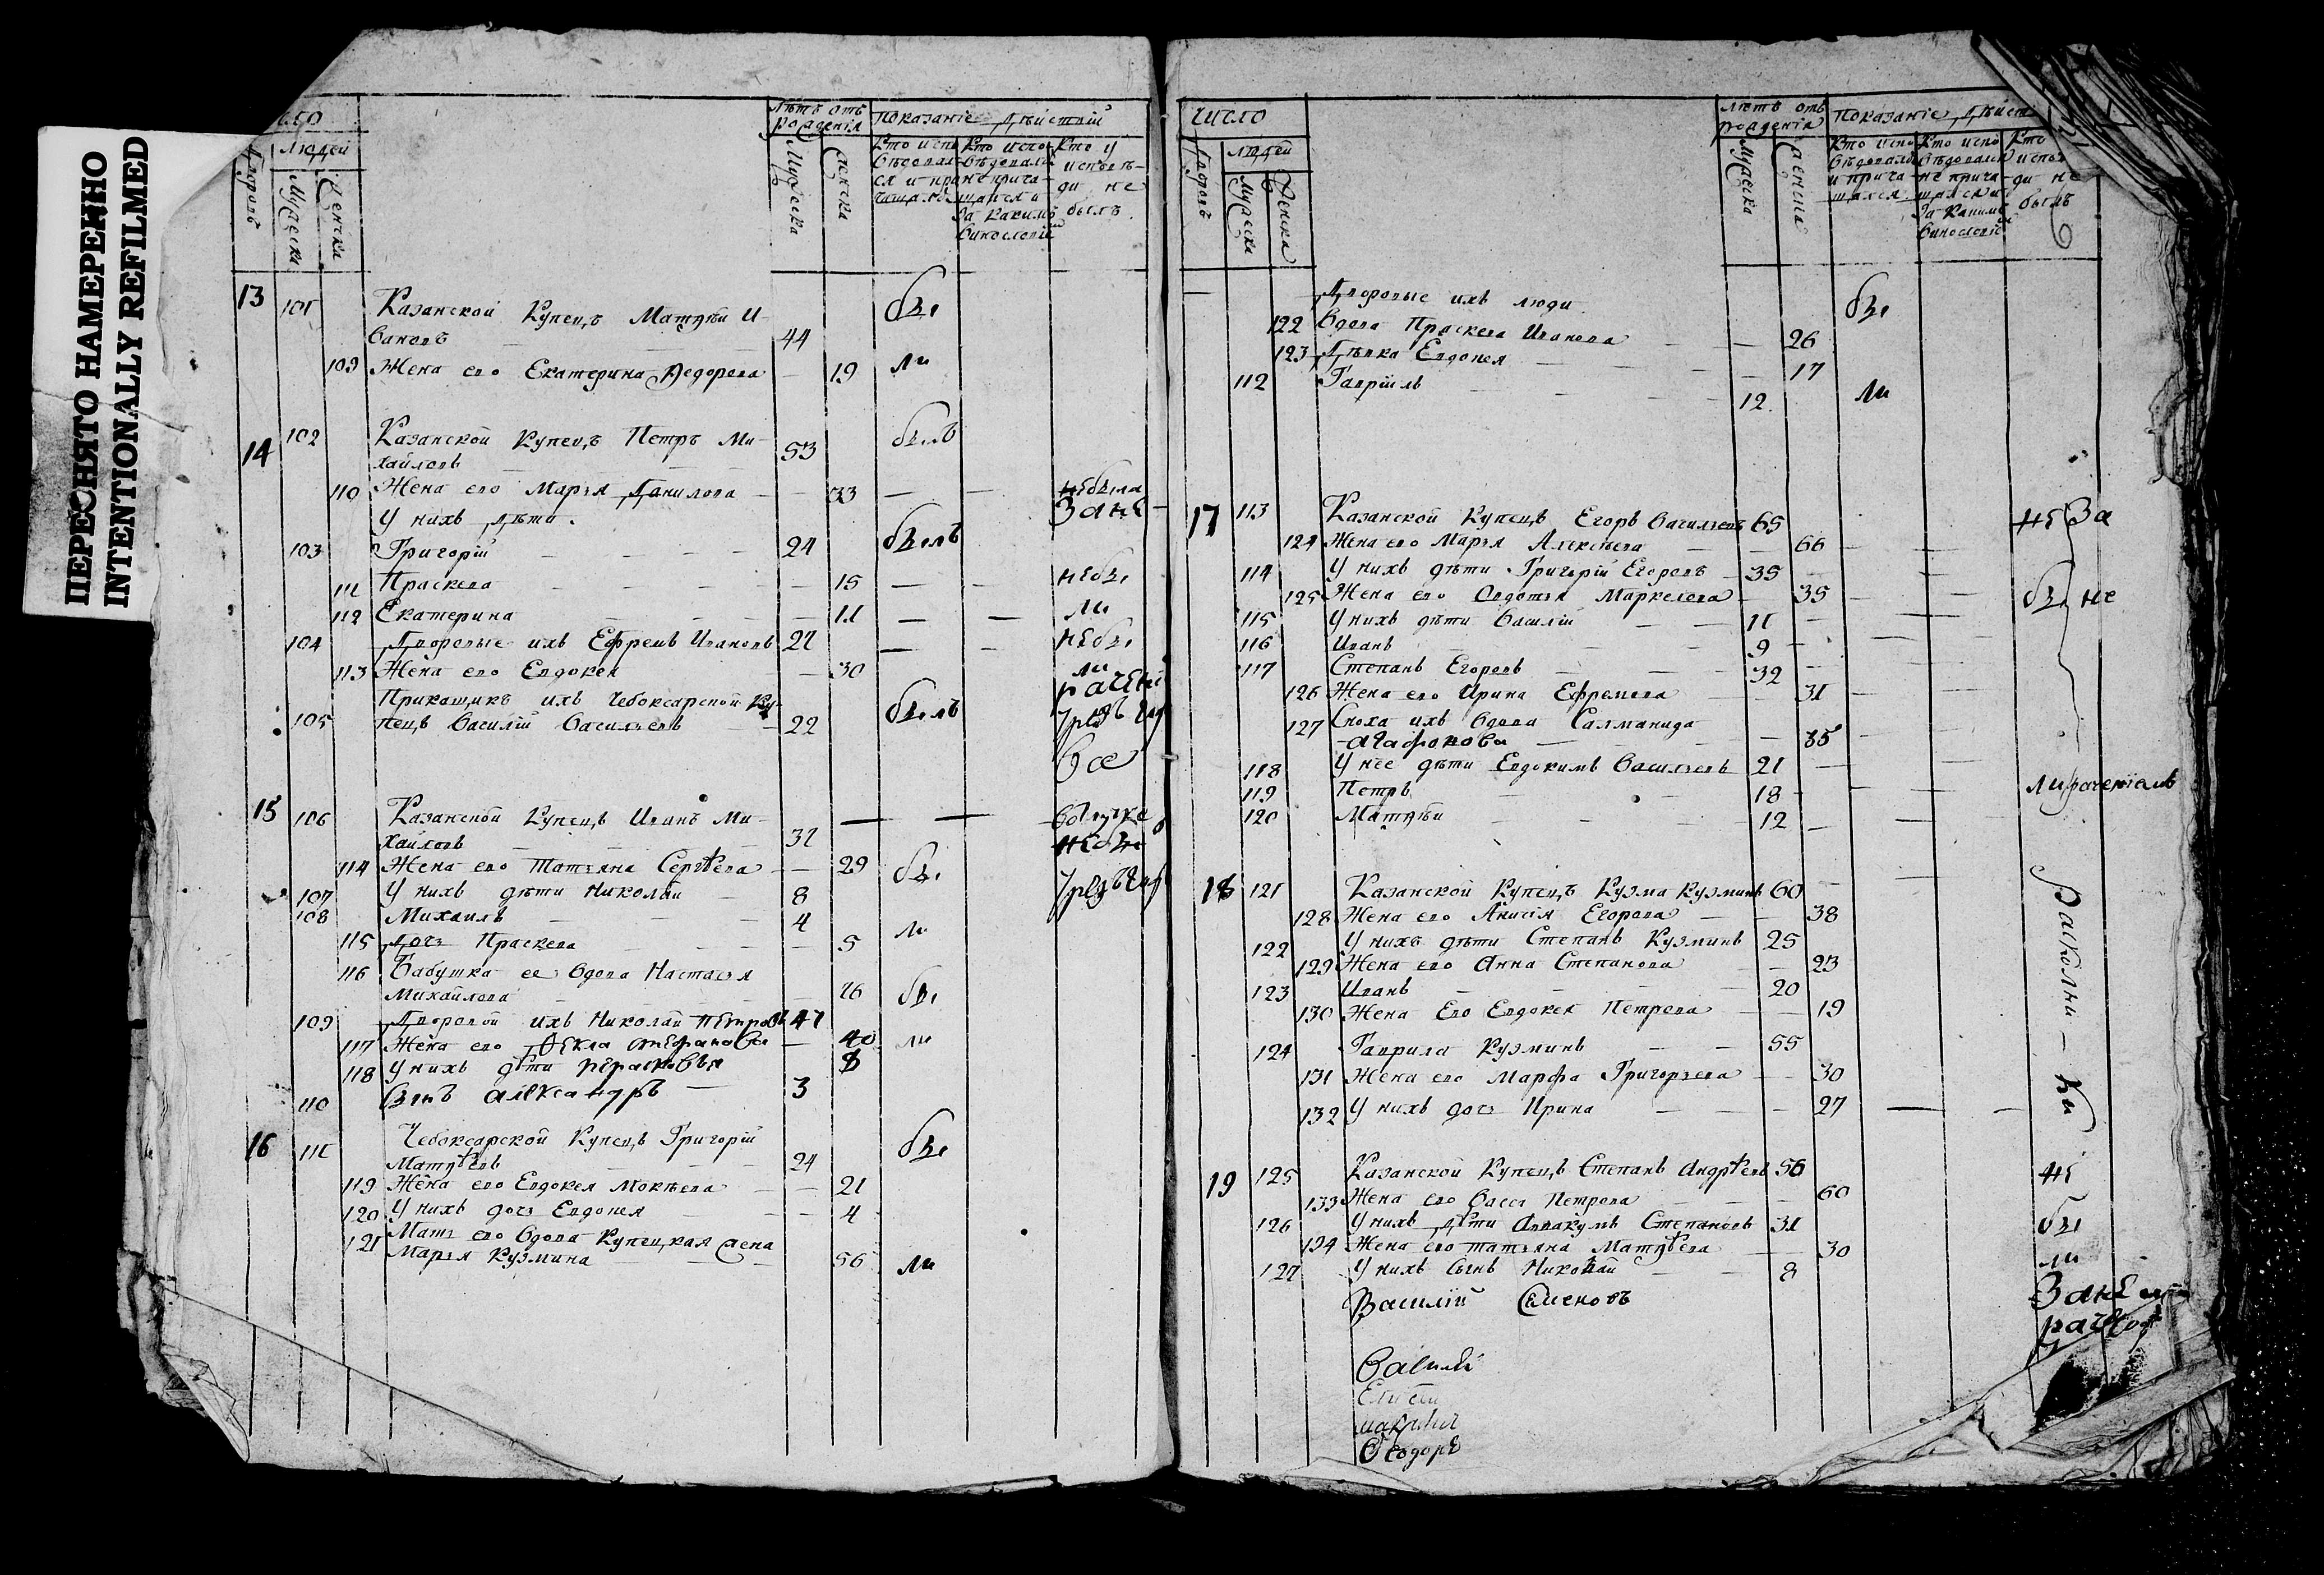 ПЕРЕСНЯТО НАМЕРЕННО
INTENTIONALLY REFILMED
Лѣтъ отъ рожденія
Показаніе дѣйствій
людей
Дворовъ
Мужеска
Женска
Мужеска
женска
Кто испо
вѣдовал
ся и при
чащался
Кто испо
вѣдовал
не прича
щался и
за какимъ
винословіем
Кто у
исповѣ-
ди не
былъ
13 101 Казанской Купецъ Матѳѣй И-
вановъ 44 бы
109 Жена его Екатерина Ѳедорова 19 ли
14 102 Казанской Купецъ Петръ Ми-
хайловъ 53 былъ
110 Жена его Марья Данилова 33 небыла
У нихъ дѣти
103 Григорій 24 былъ
111 Праскева 15 небы
112 Екатерина 11 ли
104 Дворовые ихъ Ефремъ Ивановъ небы
113 Жена его Евдокея 30 ли
Прикащикъ ихъ Чебоксарской Ку-
105 пецъ Василій Васильевъ 22 былъ
15 106 Казанской Купецъ Иванъ Ми-
хайловъ небы
114 Жена его Татьяна Сергѣева 29 бы
107 У нихъ дѣти Николай 8
108 Михаилъ 4
115 Дочь Праскева 5 ли
116 Бабушка ее вдова Настасья
Михайлова бы
109 Дворовой ихъ Николай Петровъ
117 Жена его Ѳекла Стефанова 40 ли
118 У нихъ дѣти
110 Сынъ Александръ 3
16 111 Чебоксарской Купецъ Григорій
Матѳѣевъ 24 бы
119 Жена его Евдокея Мокѣева 21
120 У нихъ дочь Евдокея 4
121 Мать его вдова Купецкая жена
Марья Кузмина 56 ли
число
Лѣтъ отъ рожденія
Показаніе дѣйст
людей
Дворовъ
Мужеска
Женска
Мужеска
женска
Кто испо
вѣдовалс
и прича
щался
Кто испо
вѣдовался
не прича
щался и
за какимъ
винословіе
Кто
испов
ди не
былъ
6
Дворовые ихъ люди бы
122 Вдова Праскева Иванова 26
123 Дѣвка Евдокея 17
112 Гавріилъ 12 ли
17 113 Казанской Купецъ Егоръ Васильевъ 65 не За
124 Жена его Марья Алексѣева 66
114 У нихъ дѣти Григорій Егоровъ 35
125 Жена его Авдотья Маркелова 35 бы не
115 У нихъ дѣти Василій 11
116 Иванъ 9
117 Степанъ Егоровъ 32
126 Жена его Ирина Ефремова 31
127 Сноха ихъ вдова Салманида
Агафонова 35
118 У нее дѣти Евдокимъ Васильевъ 21
119 Петръ 18
120 Матѳѣй 12
18 121 Казанской Купецъ Кузма Кузминъ 60
128 Жена его Анисія Егорова 38
122 У нихъ дѣти Степанъ Кузминъ 25
129 Жена его Анна Степанова 23
123 Иванъ 20
130 Жена его Евдокея Петрова 19
124 Гаврила Кузминъ 55
131 Жена его Марфа Григорьева 30
132 У нихъ дочь Ирина 27
Раколни-ки
19 125 Казанской Купецъ Степанъ Андрѣевъ 56 не
133 Жена его Васса Петрова 60
126 У нихъ дѣти Аввакумъ Степановъ 31 бы
134 Жена его Татьяна Матѳѣева 30 ли
127 У нихъ сынъ Николай 8
Василій Семеновъ
Василій
Ѳеодоръ